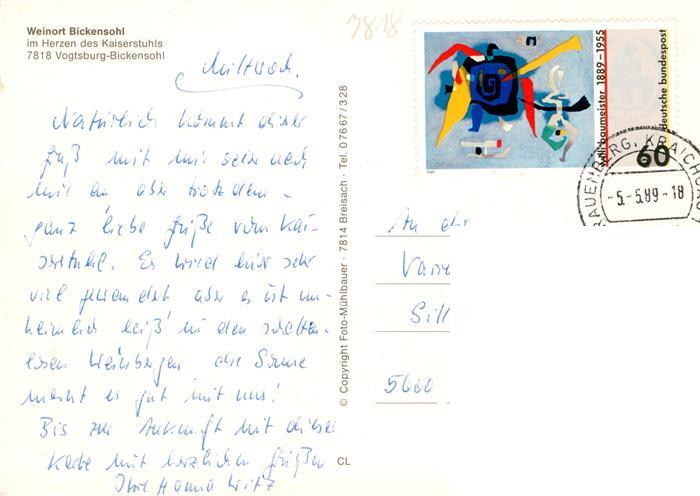 Weinort Bickensohl
im Herzen des Kaiserstuhls
7818 Vogtsburg-Bickensohl
7818
Mittwoch.
Natürlich kommt dieser
Gruß mit mir oder nach
mir an aber trotzdem -
ganz liebe Grüße vom Kai-
serstuhl. Es wird hier sehr
viel gewandert aber es ist un-
heimlich heiß in den schatten-
losen Weinbergen die Sonne
meint es gut mit uns!
Bis zur Ankunft mit dieser
Karte mit herzlichen Grüßen
Ihre Hanna
© Copyright Foto-Mühlbauer · 7814 Breisach · Tel. 07667/328
CL
Willi Baumeister 1889-1955
deutsche bundespost
60
BRAUENBERG, KRAICHGAU
-5.-5.89-18
An die
Sill
5600